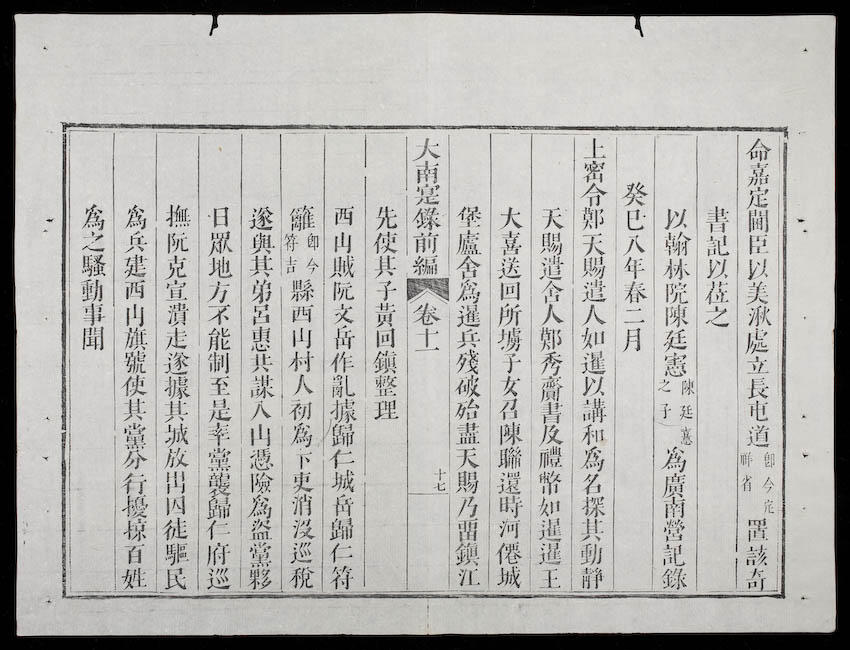 命嘉定閫臣以美湫處立長屯道即今定祥省置該奇
書記以莅之
以翰林院陳廷憲陳廷熹之子爲廣南營記錄
癸巳八年春二月
上密令鄭天賜遣人如暹以講和爲名探其動靜
天賜遣舍人鄭秀齎書及禮幣如暹暹王
大喜送回所擄子女召陳聯還時河僊城
堡廬舍爲暹兵殘破殆盡天賜乃畱鎮江
大南寔錄前編 卷十一 十七
先使其子黃回鎮整理
西山賊阮文岳作亂據歸仁城岳歸仁符
籬即今符吉縣西山村人初爲卞吏消沒巡稅
遂與其弟呂惠共謀入山憑險爲盜黨夥
日眾地方不能制至是率黨襲歸仁府巡
撫阮克宣潰走遂據其城放出囚徒驅民
爲兵建西山旗號使其黨分行擾掠百姓
爲之騷動事聞